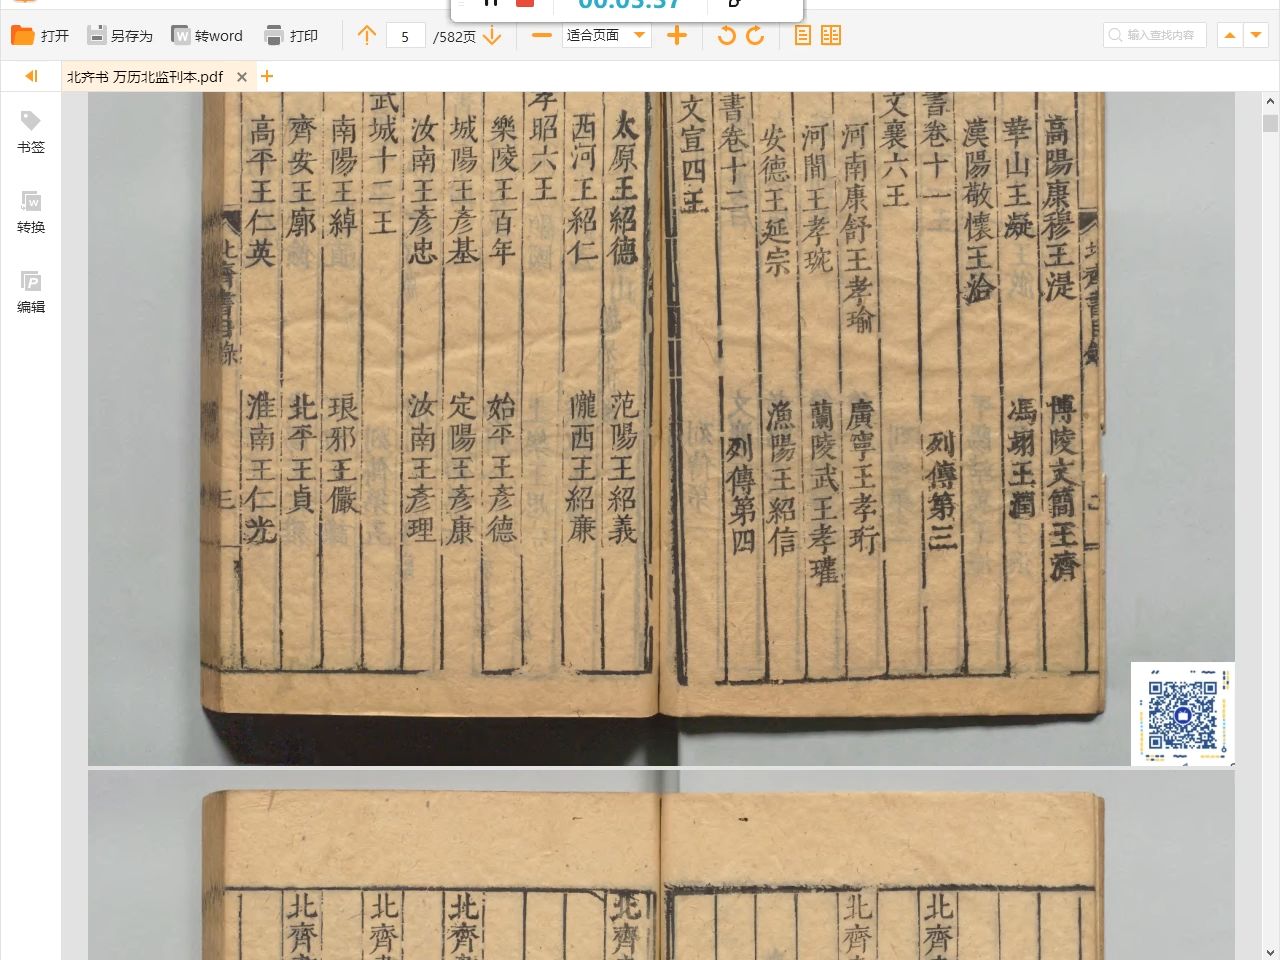 00:03:37
打开
另存为
转word
打印
5
/582页
适合页面
输入查找内容
北齐书 万历北监刊本.pdf
书签
转换
编辑
高陽康穆王湜
博陵文簡王濟
華山王凝
馮翊王潤
漢陽敬懷王洽
書卷十一
列傳第三
文襄六王
河南康舒王孝瑜
廣寧王孝珩
河間王孝琬
蘭陵武王孝瓘
安德王延宗
漁陽王紹信
書卷十二
列傳第四
文宣四王
太原王紹德
范陽王紹義
西河王紹仁
隴西王紹廉
孝昭六王
樂陵王百年
始平王彥德
城陽王彥基
定陽王彥康
汝南王彥忠
汝南王彥理
武城十二王
南陽王綽
琅邪王儼
齊安王廓
北平王貞
高平王仁英
淮南王仁光
北齊書目錄
三
北齊
北齊
北齊
北齊
北齊
北齊